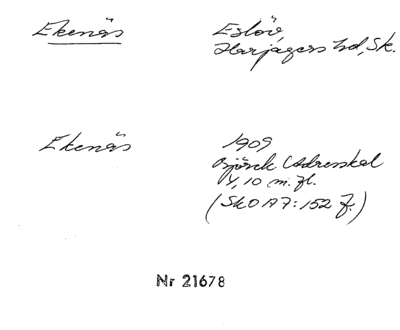 Ekenäs
Eslöv,
Harjagers hd, Sk.
Ekenäs
1909
Björck Adresskal
V, 10 m. fl.
(SkO A7: 152 f.)
Nr 21678